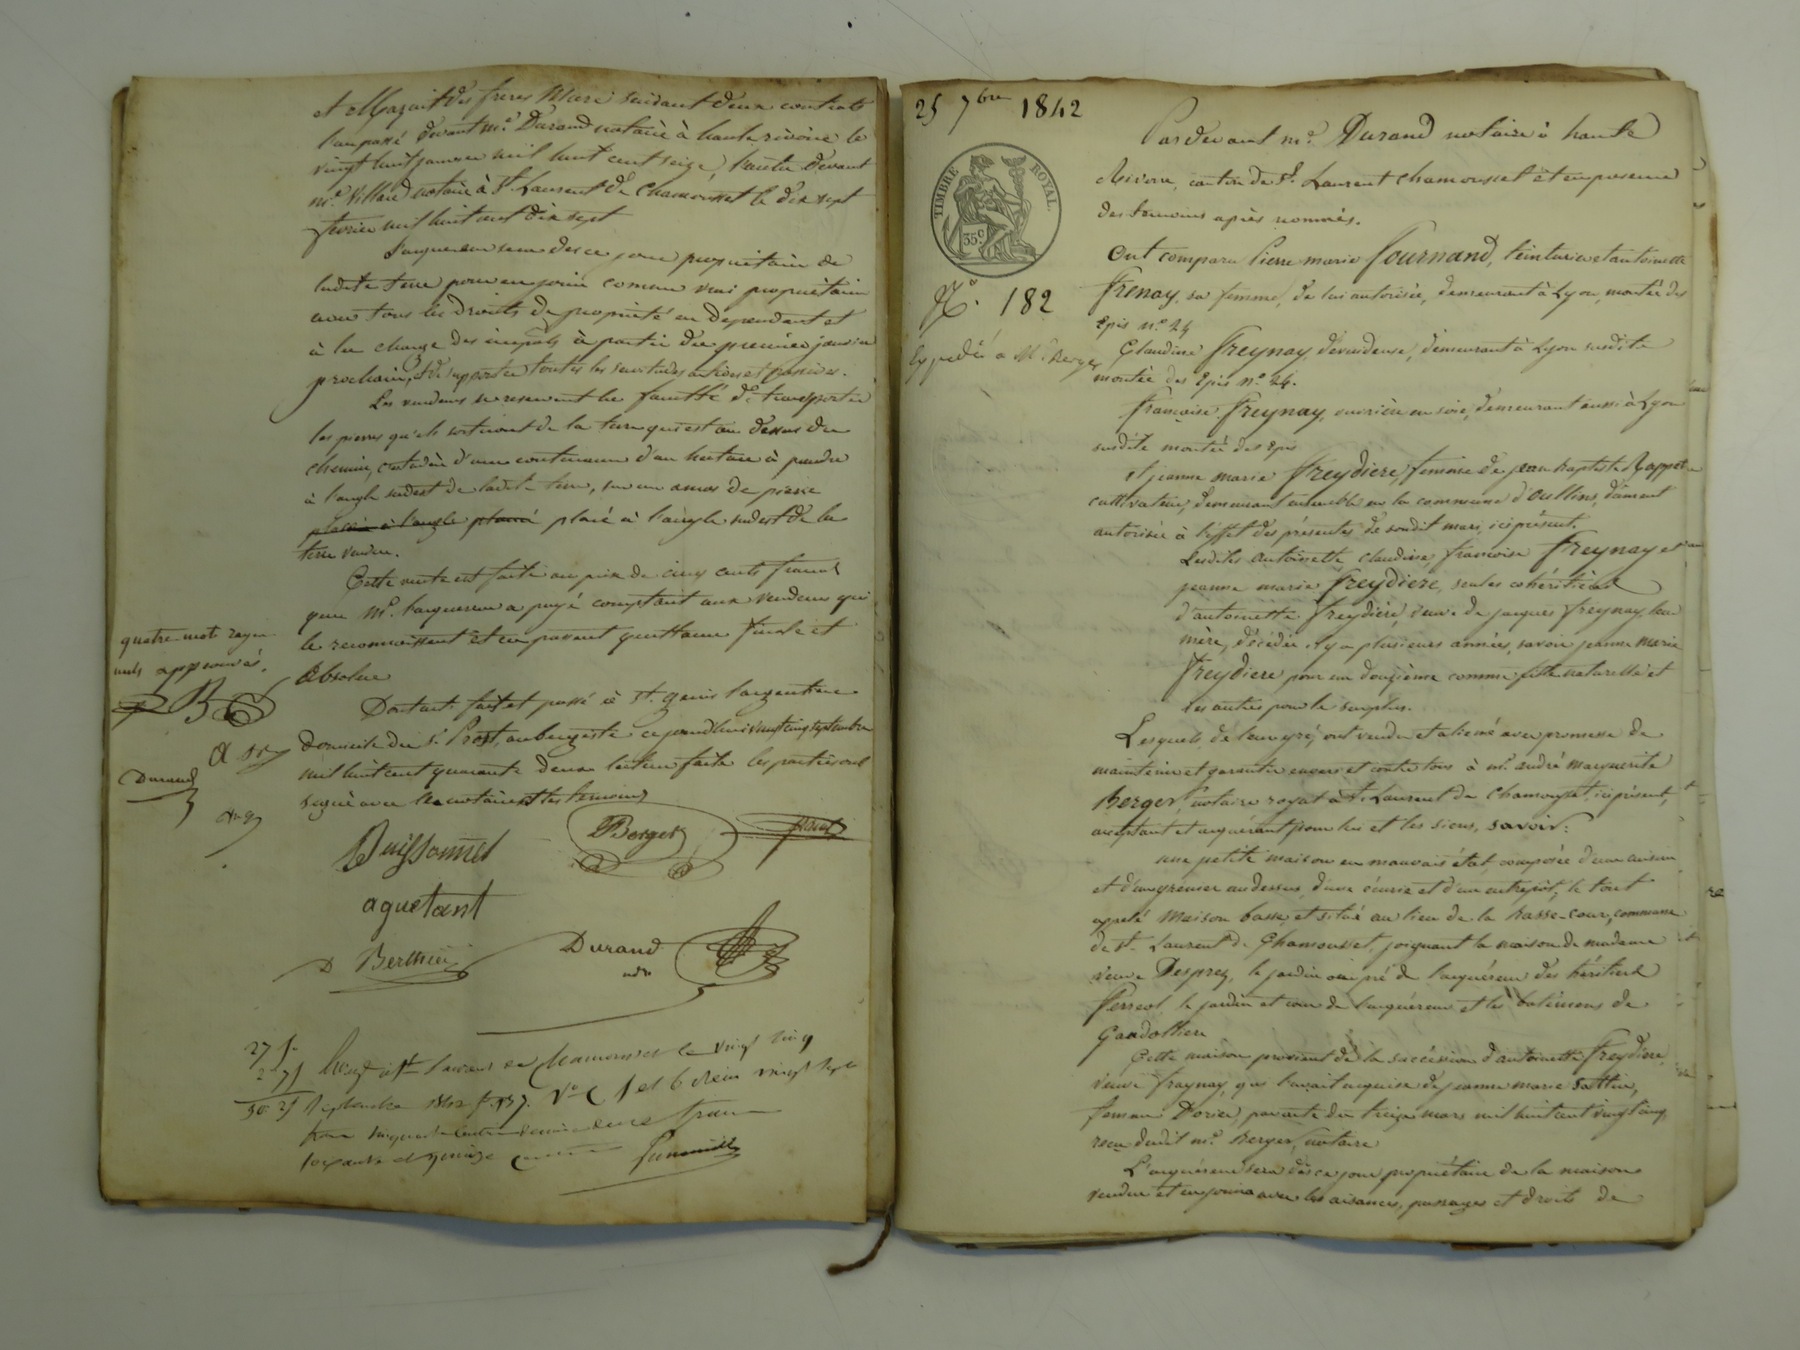 et Mazard des frères Muré suivant deux contrats
l'un passé devant me. Durand notaire à haute rivoire le
vingt huit janvier mil huit cent seize, l'autre devant
me. Villard notaire à St. Laurent de Chamousset le dix sept
février mil huit cent dix sept
L'acquéreur sera dès ce jour propriétaire de
ladite terre pour en jouir comme vrai propriétaire
avec tous les droits de propriété en dépendant et
à la charge des impôts à partir du premier janvier
prochain, et de supporter toutes les servitudes actives et passives.
Les vendeurs se réservent la faculté de transporter
les pierres qu'ils sortiront de la terre qui est au dessus du
chemin, c'est à dire d'une contenance d'un hectare à prendre
à l'angle sudest de ladite terre, sur un amas de pierre
placé à l'angle placé placé à l'angle sudest de la
terre vendue.
Cette vente est faite au prix de cinq cents francs
que Me. l'acquéreur a payé comptant aux vendeurs qui
le reconnaissent et en passent quittance finale et
absolue
Dont acte fait et passé à St. genis l'argentière
domicile du sr. Prost, aubergiste ce jourd'hui vingt cinq septembre
mil huit cent quarante deux lecture faite les parties ont
signé avec le notaire et les témoins
quatre mots rayés
nuls approuvés.
B
Durand
Buissonnet
Berger
aguetant
D Berthier
Durand
nre
27 f.
2 75
30 25
Enregt à St Laurent de Chamousset le vingt cinq
Septembre 1842 f. 137. Vo C 1 et 6 reçu vingt sept
francs cinquante centimes dixième deux francs
soixante et quinze centimes
25 7bre 1842
TIMBRE ROYAL.
35c
No. 182
Expédié à Me Berger
Pardevant me. Durand notaire à haute
Rivoire, canton de St. Laurent Chamousset et en présence
des témoins après nommés.
Ont comparu Pierre marie Fournand, teinturier et antoinette
Frenay, sa femme, de lui autorisée, demeurant à Lyon, montée des
Epis no. 24
Claudine Freynay dévideuse, demeurant à Lyon susdite
montée des Epis no. 24.
françoise Freynay, ouvrière en soie, demeurant aussi à Lyon
susdite montée des Epis
Et jeanne marie Freydiere, femme de jean baptiste
cultivateur, demeurant ensemble en la commune d'Oullins, dûment
autorisée à l'effet des présentes de sondit mari, ici présent.
Lesdites Antoinette, claudine, françoise Freynay et
jeanne marie Freydiere, seules cohéritières
d'antoinette Freydière, veuve de jacques Freynay, leur
mère, décédée il y a plusieurs années, savoir jeanne Marie
Freydiere pour un douzième comme fille naturelle et
les autres pour le surplus.
Lesquels, de leur gré, ont vendu et aliéné avec promesse de
maintenir et garantir envers et contre tous à me. andré marguerite
Berger notaire royal à St. Laurent de Chamousset, ici présent,
acceptant et acquérant pour lui et les siens, savoir:
une petite maison en mauvais état, composée d'une cuisine
et d'un grenier au dessus, d'une écurie et d'un entrepôt, le tout
appelé Maison basse, et situé au lieu de la basse-cour, commune
de St. Laurent de Chamousset, joignant la maison de madame
veuve Desprez, le jardin ou pré de l'acquéreur des héritiers
Ferreol, le jardin et cour de l'acquéreur et les bâtiments de
Gaudolliere
Cette maison provient de la succession d'antoinette Freydiere
veuve Fraynay, qui l'avait acquise de jeanne marie
femme Dorier, par acte du treize mars mil huit cent vingt cinq
reçu dudit me. Berger, notaire
L'acquéreur sera dès ce jour propriétaire de la maison
vendue et en jouira avec les aisances, passages et droits de